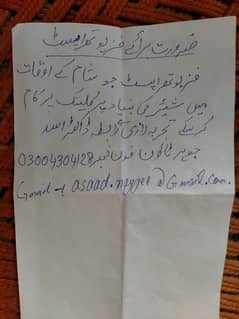 ضرورت برائے فزیوتھراپسٹ
فزیوتھراپسٹ جو شام کے اوقات
میں شیئر کی بنیاد پر کلینک پر کام
کر سکے تجربہ لازمی رابطہ ڈاکٹر اسد
جوہر ٹاؤن فون نمبر 03004304128
Gmail → asaad.nayyer@Gmail.com.